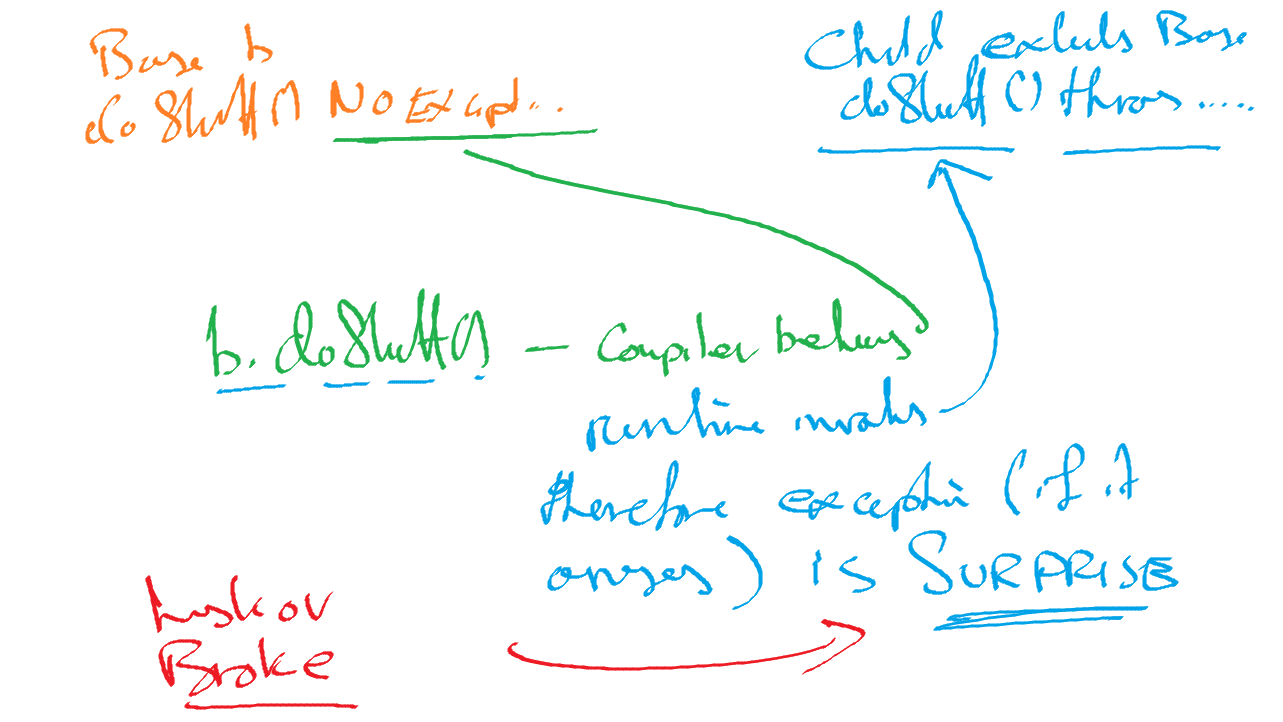 Base b
doStuff() No Except...
Child extends Base
doStuff() throws.....
b. doStuff() – Compiler believes
runtime invokes
therefore exception (if it
arises) is SURPRISE
Liskov
Broke